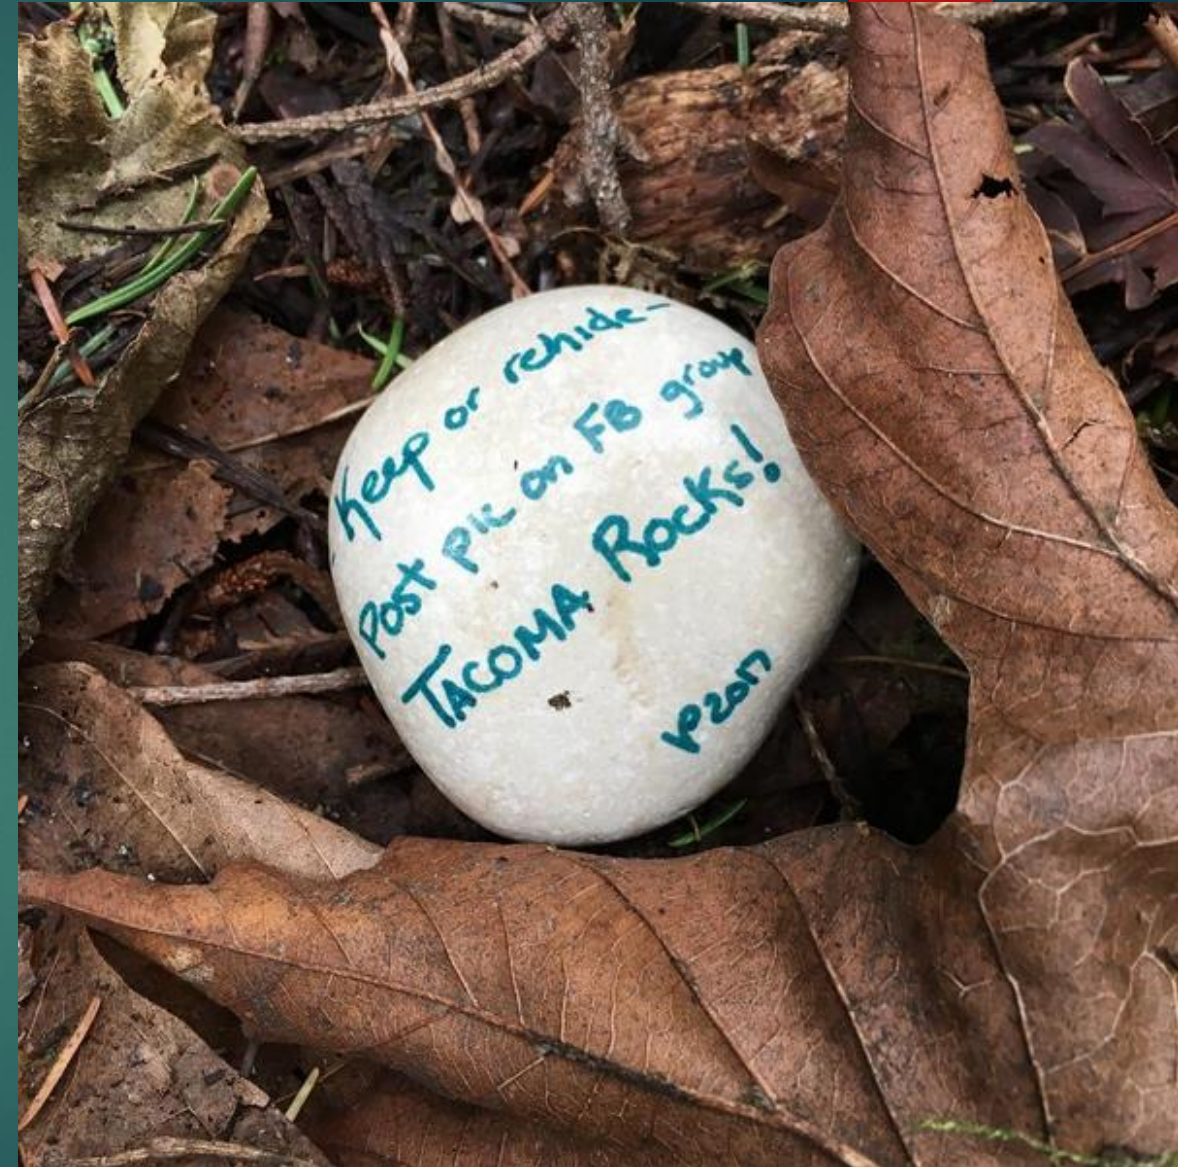 Keep or rehide-
Post pic on FB group
TACOMA Rocks!
VP2017